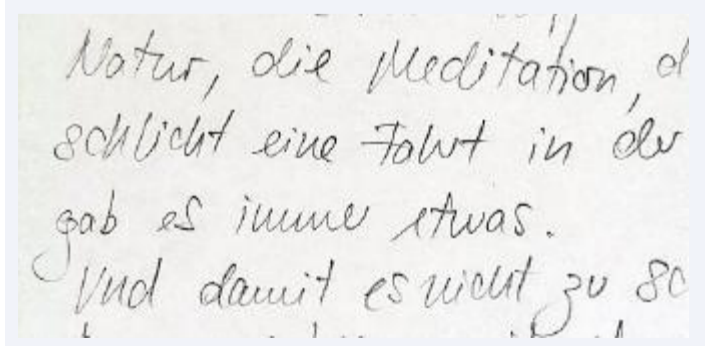 Natur, die Meditation,
schlicht eine Fahrt in der
gab es immer etwas.
Und damit es nicht zu